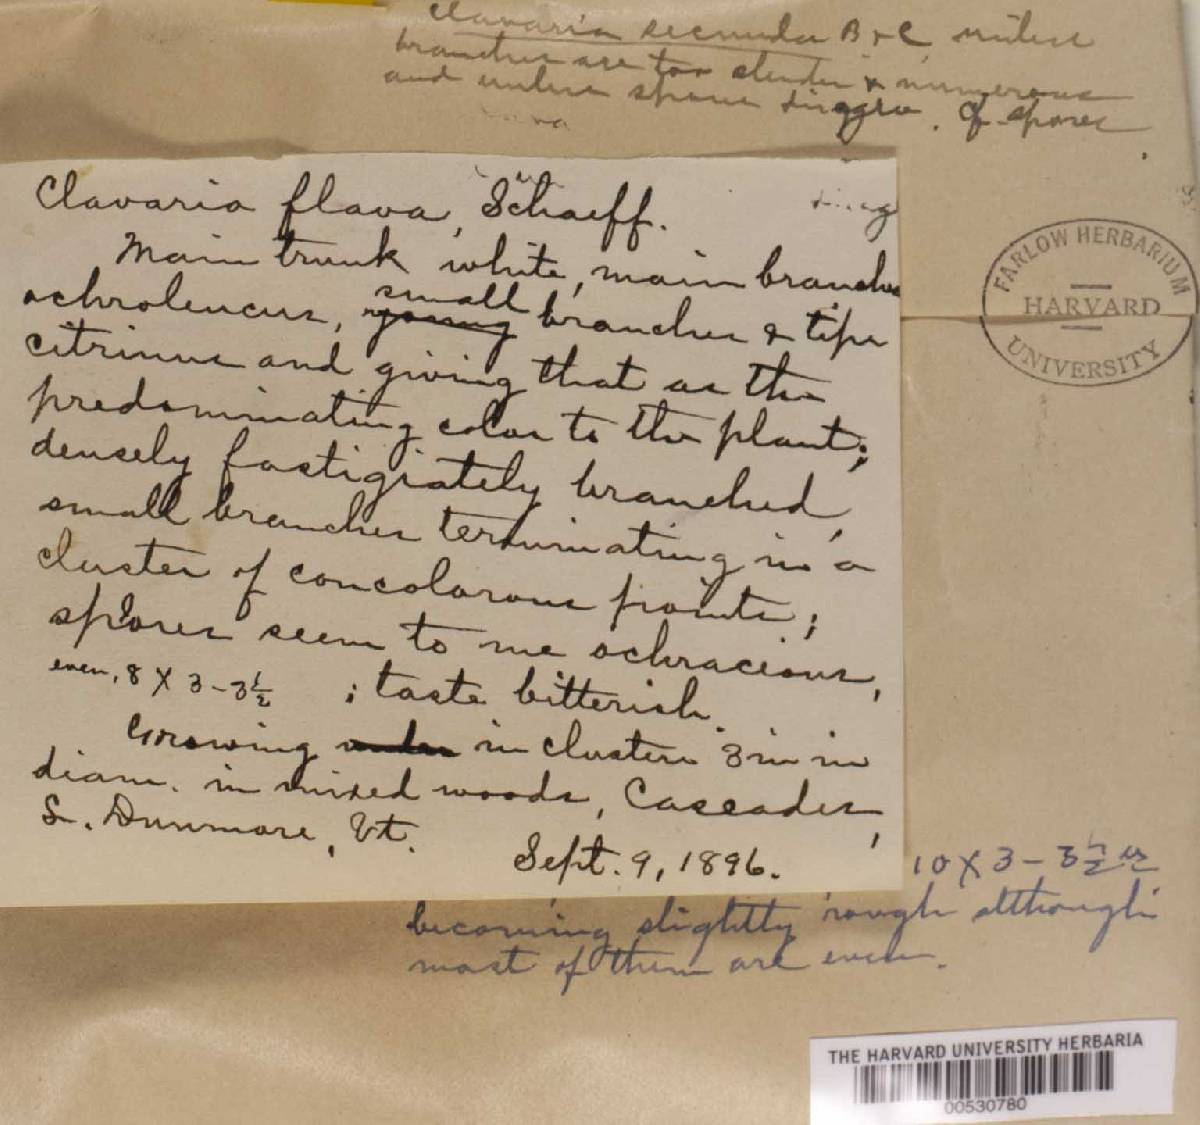 Clavaria secunda B & C unless
branches are too slender & numerous
and unless spores disagree. Cf. spores
Clavaria flava, Schaeff.
Main trunk white, main branches
ochroleucus, young small branches & tips
citrinus and giving that as the
predominating color to the plant;
densely fastigiately branched,
small branches terminating in a
cluster of concolorous points;
spores seem to me ochracious,
even, 8 X 3 - 3½ ; taste bitterish.
Growing under in clusters 3 in in
diam. in mixed woods, Cascades,
L. Dunmore, Vt.
Sept. 9, 1896.
10 X 3 - 3½
becoming slightly rough although
most of them are even.
FARLOW HERBARIUM
HARVARD
UNIVERSITY
THE HARVARD UNIVERSITY HERBARIA
00530780